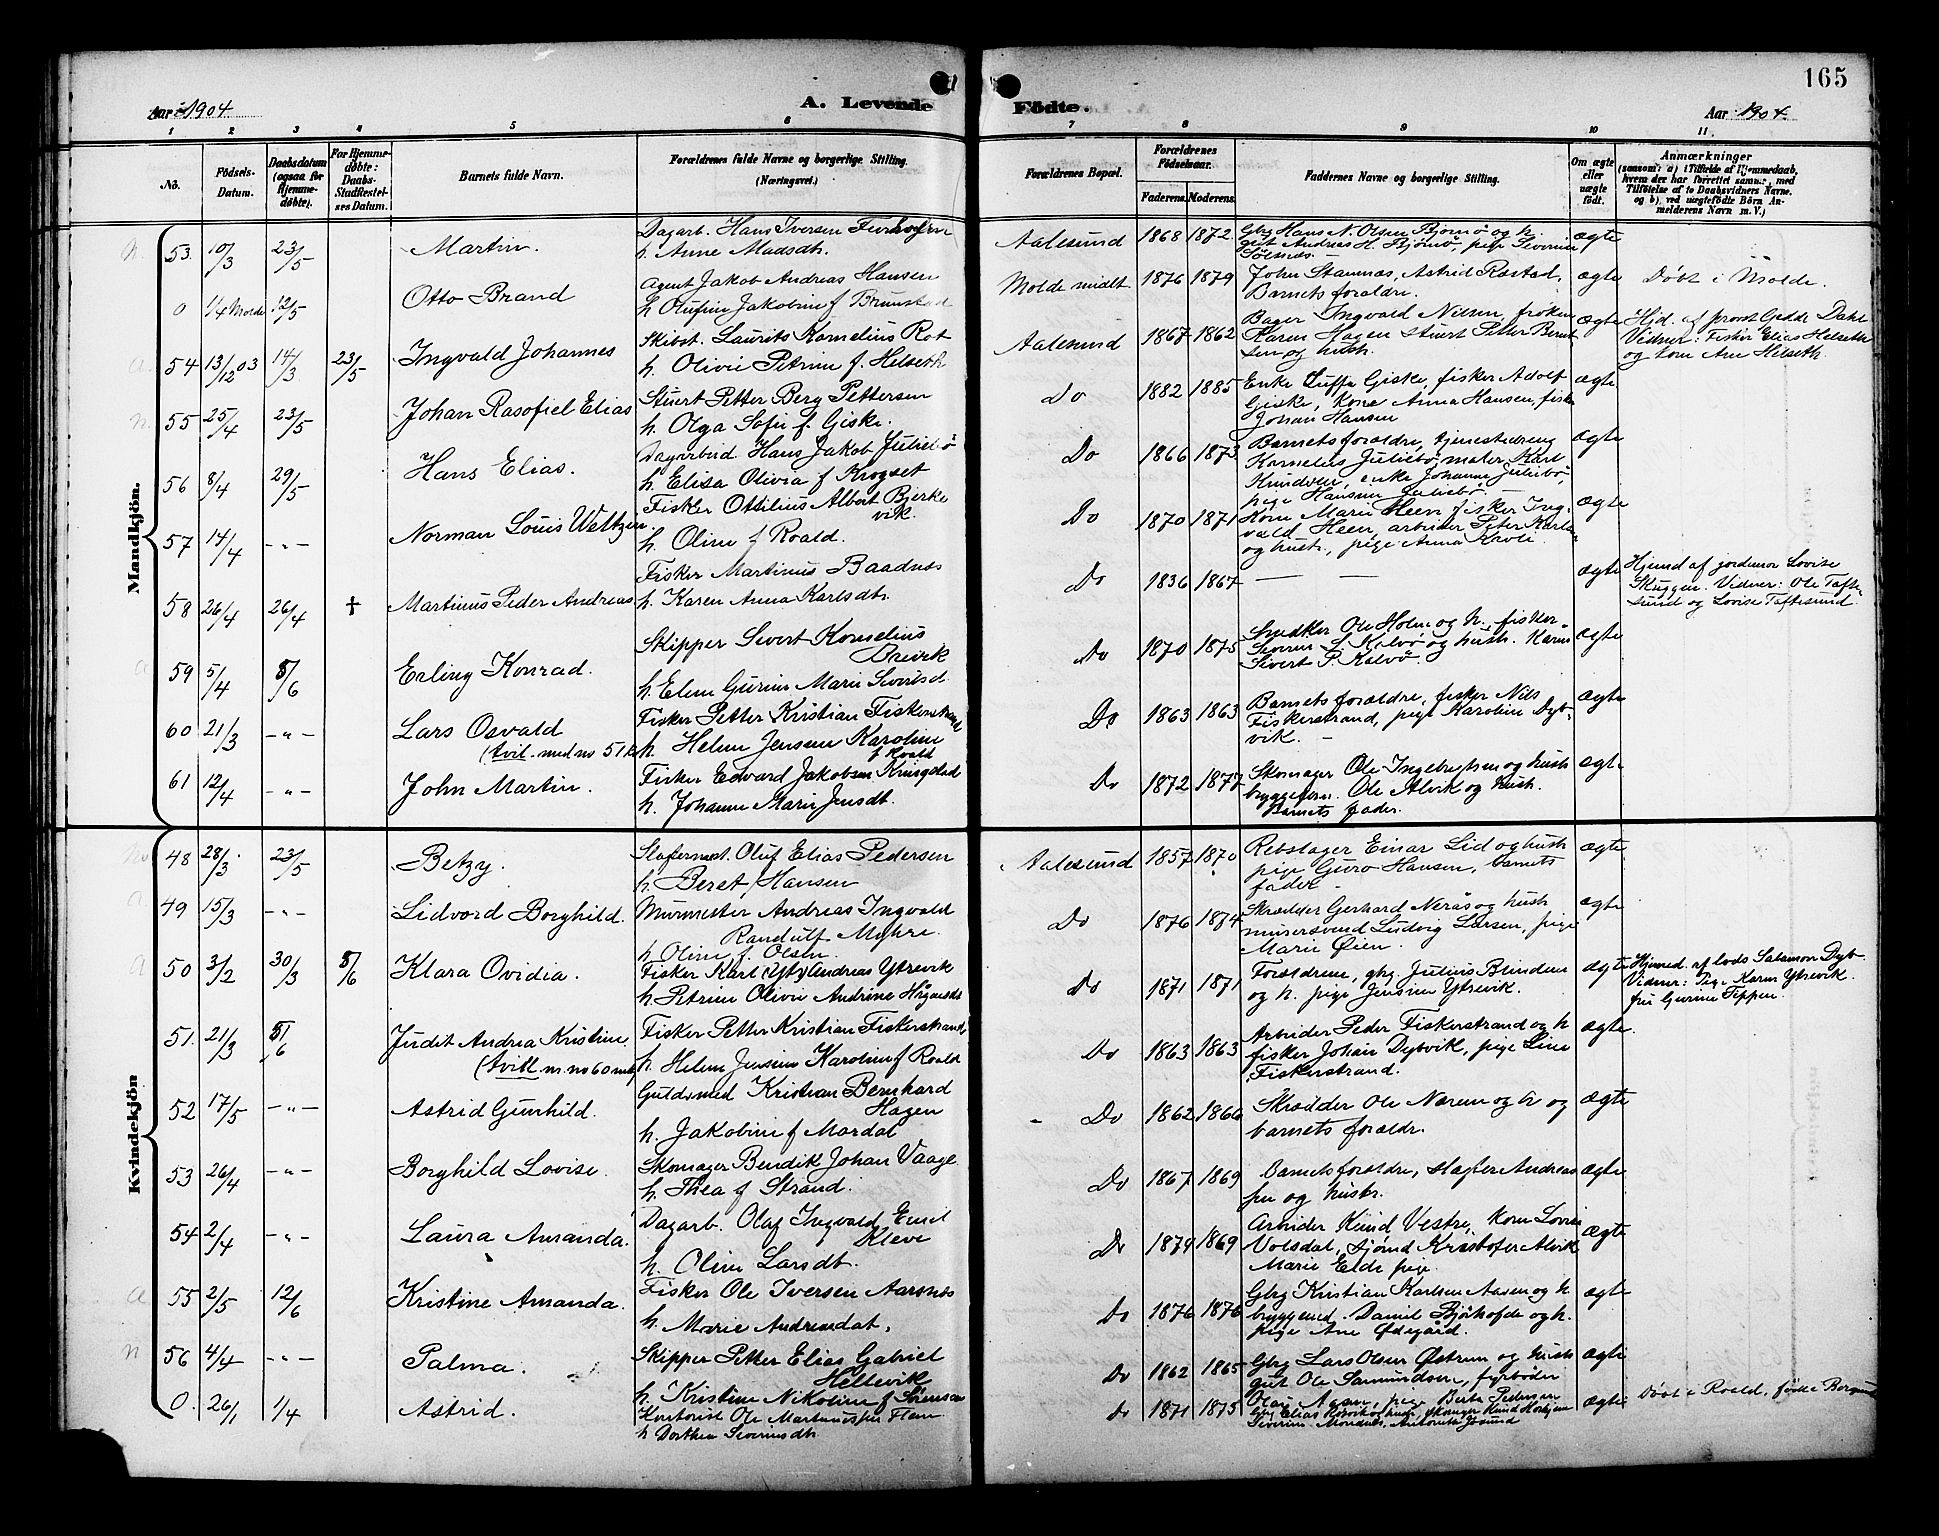 165
Aar 1904
A. Levende Födte.
Aar 1904.
1 2 3 4 5 6 7 8 9 10 11.
No.
Födsels-Datum.
Daabsdatum (ogsaa for Hjemmedöbte).
For Hjemmedöbte: Daabs-Stadfæstelses Datum.
Barnets fulde Navn.
Forældrenes fulde Navne og borgerlige Stilling. (Næringsvei.)
Forældrenes Bopæl.
Forældrenes Födselsaar.
Faderens. Moderens.
Faddernes Navne og borgerlige Stilling.
Om ægte eller uægte født.
Anmærkninger
(saasom: a) i Tilfælde af Hjemmedaab, hvem der har forrettet samme, med Tilföielse af to Daabsvidners Navne, og b) ved uægtefödte Börn Anmelderens Navn m. V.)
Mandkjön.
n. 53 10/3 23/5 Martin. Dagarb. Hans Iversen
h. Anne Madsdt. Aalesund 1868 1872 Gbr Hans N. Olsen Bjørnø og h.
gut Andreas H. Bjørnø, pige Severine
Solnæs. ægte
0 1/4 Molde 12/5 Otto Brand Agent Jakob Andreas Hansen
h. Olufine Jakobine f Brunstad Molde midlt 1876 1879 John Stamnas, Astrid Røstad,
Barnets forældre. ægte Döbt i Molde.
a. 54 13/12 03 14/3 23/5 Ingvald Johannes Skibst. Laurits Kornelius Rot
h. Olivie Petrine f. Helseth Aalesund 1867 1862 Bager Ingvald Nilsen, frøken
Karen Hagen stuert Petter Berntsen og hustr. ægte Hjd. af provst Gedde Dahl
Vidner: Fisker Elias Helseth
og kone Ane Helseth.
n. 55 25/4 23/5 Johan Rasofiel Elias Stuert Petter Berg Pettersen
h. Olga Sofie f. Giske. Do 1882 1885 Enke Luffa Giske, fisker Adolf
Giske, Kone Anna Hansen, fisker
Johan Hansen ægte
56 8/4 29/5 Hans Elias. Dagarbeid. Hans Jakob Juliebø
h. Elisa Olivia f Krogset Do 1866 1873 Barnets forældre, tjenestedreng
Kornelius Juliebø, maler Karl
enke Johanne Juliebø,
pige Hansine Juliebø. ægte
57 14/4 -"- Norman Louis Weltzin. Fisker Ottilius Albert Bjerkevik.
h. Oline f Roald. Do 1870 1871 Kone Marie Heen, fisker Ingvald Heen, arbeider Peter Karlsen
og hustr., pige Anna ægte
58 26/4 26/4 † Martinus Peder Andreas Fisker Martinus Baadnæs
h. Karen Anna Karlsdt. Do 1836 1867 — — ægte Hjemd af jordmor Lovise
Skuggen. Vidner: Ole Taftesund og Lovise Taftesund.
a 59 5/4 5/6 Erling Konrad. Skipper Sivert Kornelius
Brevik
h. Elene Gurine Marie Sivertsd. Do 1870 1875 Snedker Ole Holm og h., fisker
Severin S. Kalvø og hustr. Karen
Sivert P. Kalvø. ægte
60 21/3 -"- Lars Osvald
(tvil. med no 51 k Fisker Petter Kristian Fiskerstrand
h. Helene Jensine Karoline
f Roald Do 1863 1863 Barnets forældre, fisker Nils
Fiskerstrand, pige Karoline Dybvik. — ægte
61 12/4 -"- John Martin. Fisker Edvard Jakobsen Kringstad
h. Johanne Marie Jensdt. Do 1872 1877 Skomager Ole Ingebrigtsen og hustr
bryggeform. Ole Alvik og hustr.
Barnets fader. ægte
Kvindekjön
48 28/3 23/5 Betzy. Slagtermest. Oluf Elias Pedersen
h. Beret Hansen Aalesund 1857 1870 Rebslager Einar Lid og hustr
pige Guro Hansen, barnets
fader. ægte
a. 49 15/3 -"- Lidvord Borghild. Murmester Andreas Ingvald
Randulf Myhre.
h. Oline f. Olsen. Do 1876 1874 Skrædder Gerhard Nerås og hustr
murersvend Ludvig Larsen, pige
Marie Øien. ægte
a 50 3/2 30/3 5/6 Klara Ovidia. Fisker Karl Andreas Ytrevik
h. Petrine Olivie Andrine Do 1871 1871 Forældrene, gbr. Julius Blindem
og h. pige Jensine Ytrevik. ægte Hjemd. af lods Salamon Dyb-
Vidner: Pige Karen Ytrevik
fru Gurine Tippen.
51. 21/3 5/6 Judit Andrea Kristine.
(tvill. m. no 60 mk) Fisker Petter Kristian Fiskerstrand
h. Helene Jensine Karoline f Roald Do 1863 1863 Arbeider Peder Fiskerstrand og h
fisker Johan Dybvik, pige Line
Fiskerstrand. ægte.
52 17/5 -"- Astrid Gunhild. Guldsmed Kristian Bernhard
Hagen
h. Jakobine f Mardal Do 1862 1866 Skrædder Ole Nærem og h og
barnets forældr. ægte
53 26/4 -"- Borghild Lovise. Skomager Bendik Johan Vaage.
h. Thea f Strand. Do 1867 1869 Barnets forældre, slagter Andreas
og hustr. ægte
54 2/4 -"- Laura Amanda. Dagarb. Olaf Ingvald Emil
Kleve
h. Oline Larsdt. Do 1879 1869 Arbeider Knud Vestre, kone Lovise
Volsdal, sjømd Kristofer Alvik
Marie Elde pige. ægte
a 55 2/5 12/6 Kristine Amanda. Fisker Ole Iversen Aarsnes
h. Marie Andreasdat. Do 1876 1876 Gbr Kristian Karlsen Aasen og h
bryggemd. Daniel og h.
pige Ane Ødegård. ægte
n 56 4/4 -"- Palma. Skipper Petter Elias Gabriel
Hellevik
h. Kristine Nikoline f Do 1862 1865 Gbr Lars Olsen Østrem og hustr
gut Ole Samundsen, fyrbøder
ægte
0. 26/1 1/4 Astrid. Kontorist Ole Martinussen Flem
h Dorthea Severinsdt. do 1871 1875 pige Berta Pedersen
Elias
ægte Döbt i Roald, födt i Borgund